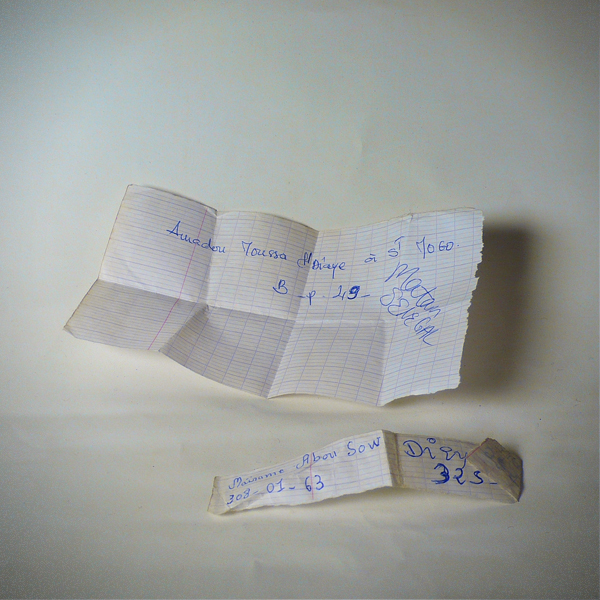 Amadou Moussa N'Diaye à ST YOGO.
B_p_49_
Matam
SENEGAL
Mariame Abou Sow
308_01_63
Diey
323_